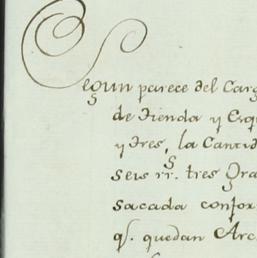 Segun parece del Carg
de Tienda y Esqu
y tres, la Cantid
seis rr.s tres gra
sacada confor
q.e quedan Arc